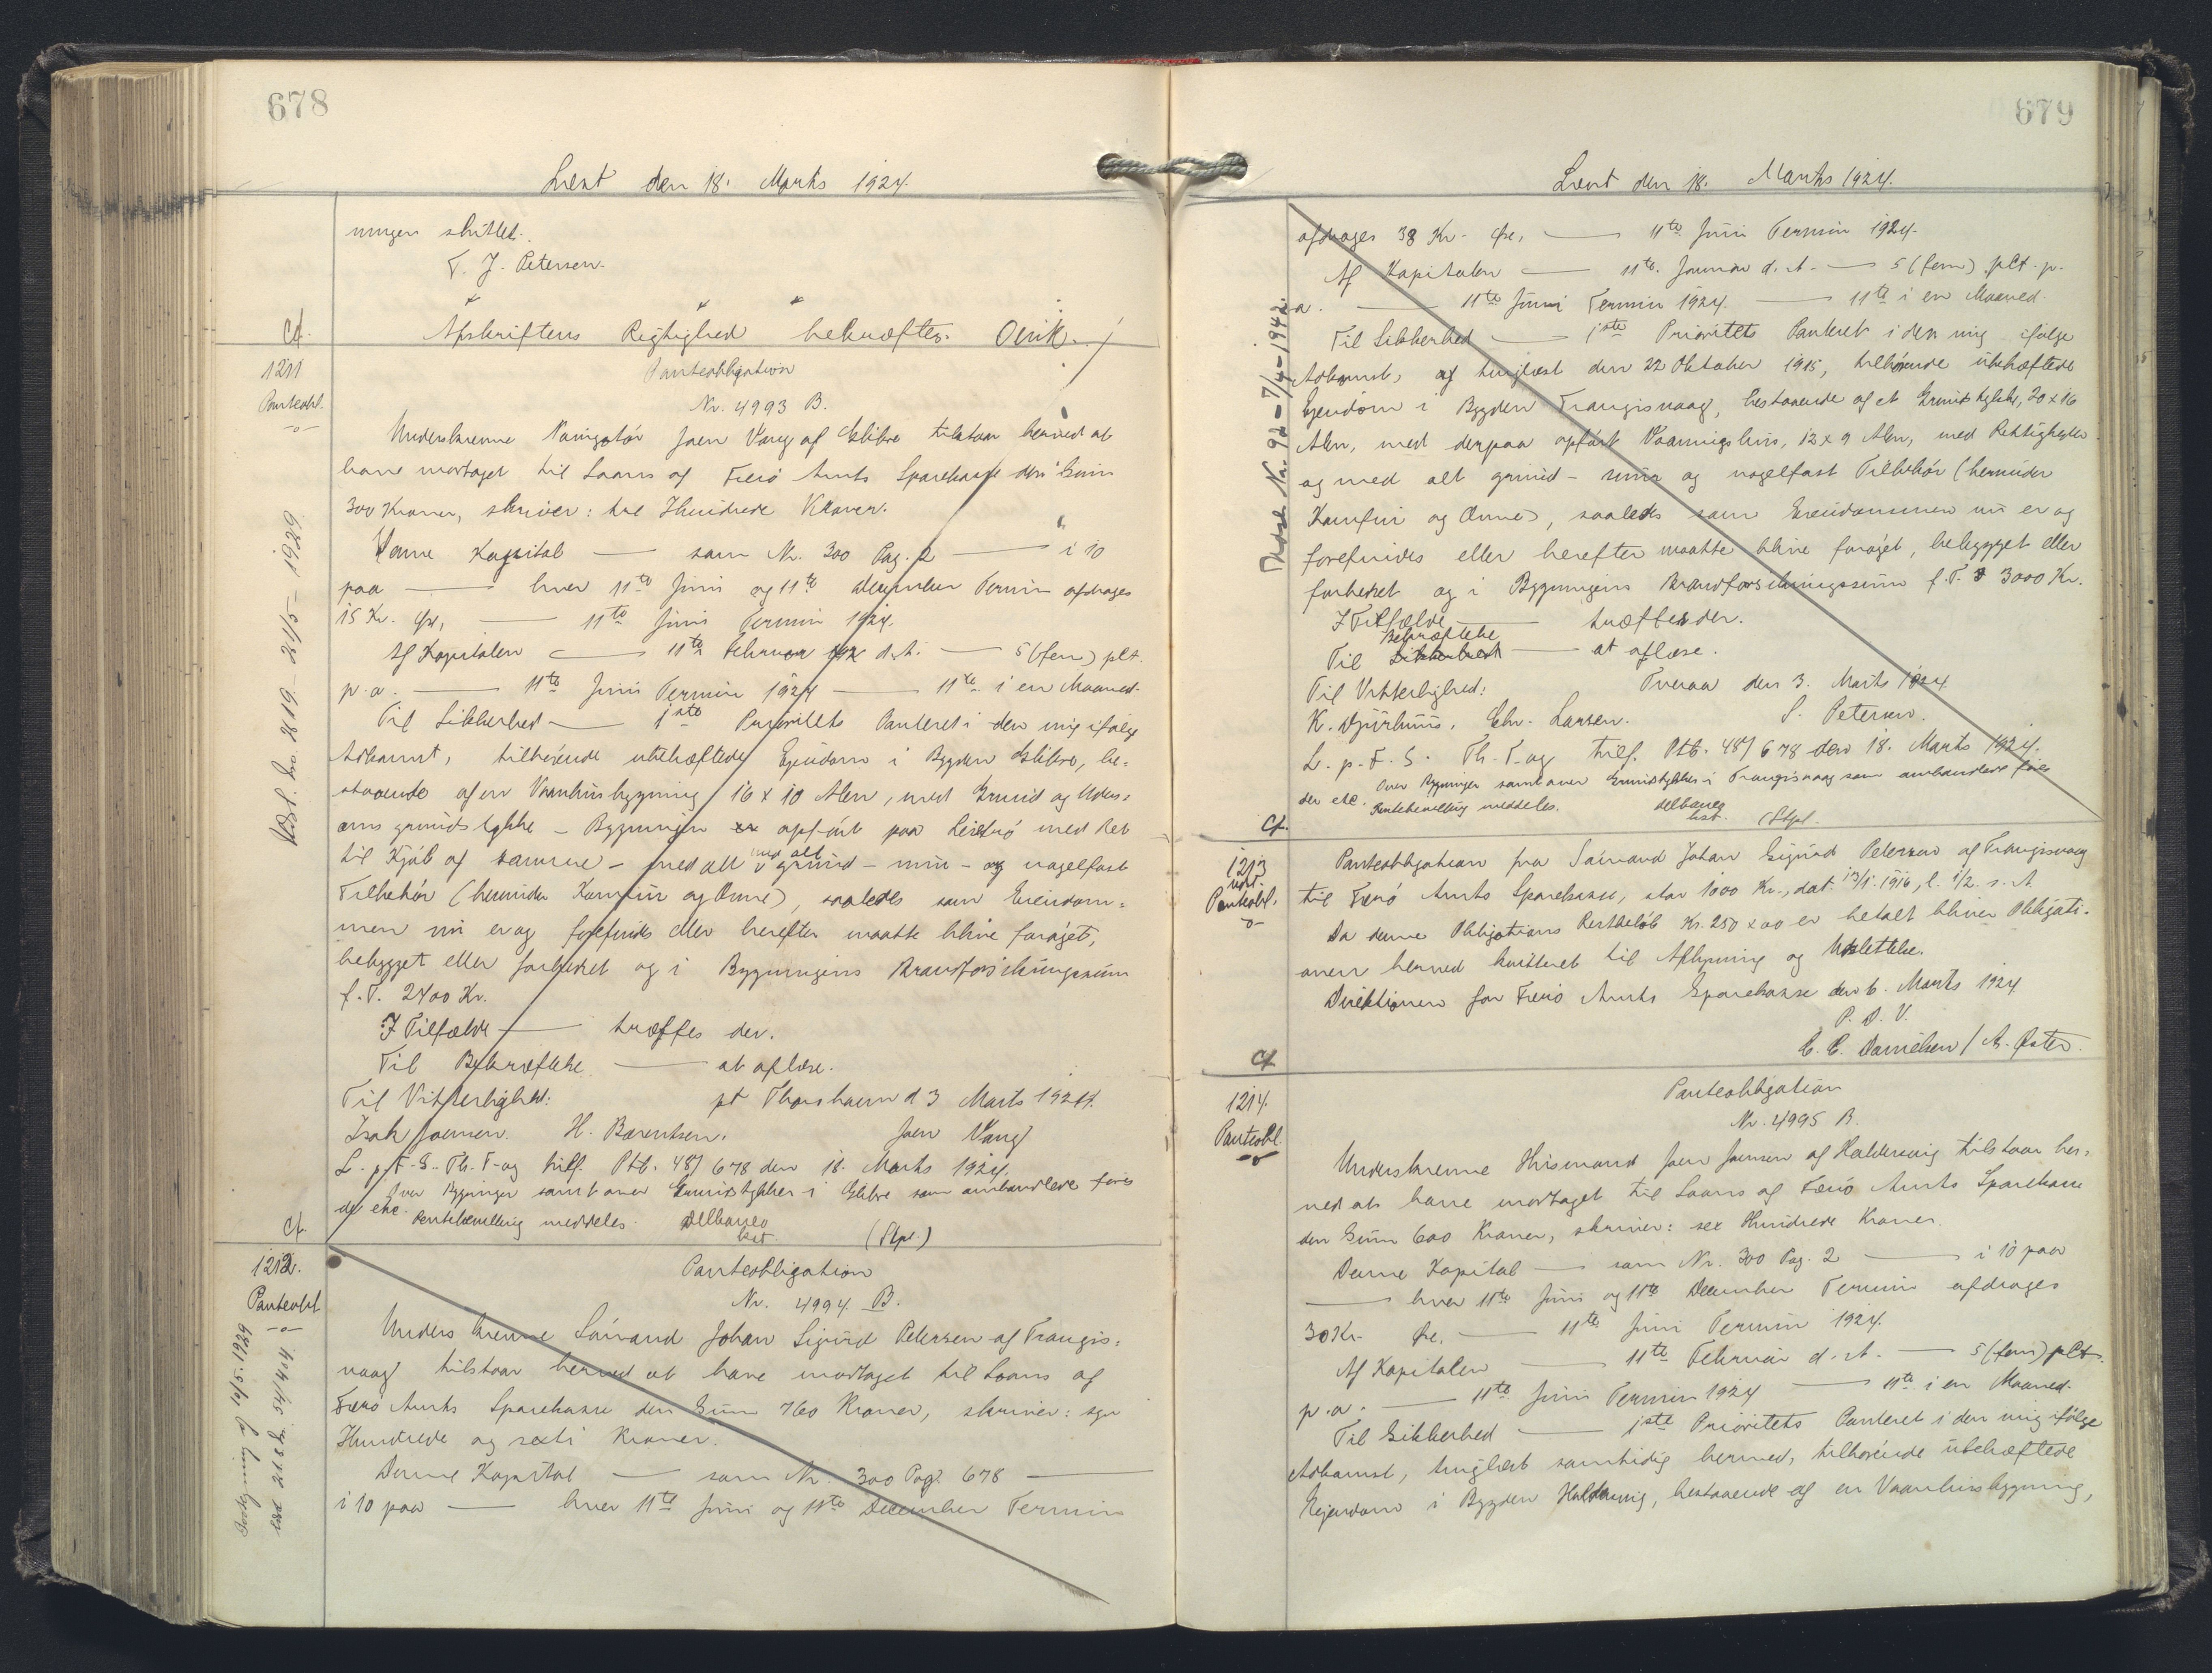 678
Læst den 18. Marts 1924.
ningen skiftet.
T. J. Petersen.
Cf.
Afskriftens Rigtighed bekræftes.
1211
Panteobl.
Panteobligation
Nr. 4993 B.
Underskrevne Joen Vang af tilstaar herved at
have modtaget til Laans af Færø Amts Sparekasse den Sum
300 Kroner, skriver: tre Hundrede Kroner.
Denne Kapital — som Nr. 300 Pag. 2 — i 10
paa — hver 11te Juni og 11te December Termin afdrages
15 Kr. Øre, — 11te Juni Termin 1924.
Af Kapitalen — 11te Februar d. A. — 5 (fem) pCt.
p. a. — 11te Juni Termin 1924 — 11te i en Maaned.
Til Sikkerhed — 1ste Prioritets Panteret i den mig ifølge
Adkomst, tilhørende ubehæftede Ejendom i Bygden be-
staaende af en Vaanhusbygning 16 x 10 Alen, med Grund og
grundstykke – Bygningen opført paa med Ret
til Kjøb af samme – med alt grund – mur – og nagelfast
Tilbehør (herunder Komfur og Ovne), saaledes som Eiendom-
men nu er og forefindes eller herefter maatte blive forøget,
bebygget eller forbedret og i Bygningens Brandforsikringssum
f. T. 2400 Kr.
I Tilfælde — træffes der.
Til Bekræftelse — at aflæse.
Til Vitterlighed: pt Thorshavn d 3 Marts 1924.
Isak Joensen. H. Berentsen. Joen Vang
L. p. F. S. Th. T. og tilf. Ptb. 48/678 den 18. Marts 1924.
Over Bygninger samt over Grundstykker i som ombandlede føies
der etc. Pantebevilling meddeles. (Stpl.)
Cf.
1212.
Panteobl
Panteobligation
Nr. 4994 B.
Underskrevne Johan Sigurd Petersen af Trangis-
vaag tilstaar herved at have modtaget til Laans af
Færø Amts Sparekasse den Sum 760 Kroner, skriver: syv
Hundrede og sexti Kroner.
Denne Kapital — som Nr. 300 Pag. 678 —
i 10 paa — hver 11te Juni og 11te December Termin
679
Læst den 18. Marts 1924.
afdrages 38 Kr. Øre, — 11te Juni Termin 1924.
Af Kapitalen — 11te. Januar d. A. — 5 (fem) pCt. p.
a. — 11te Juni Termin 1924. — 11te i en Maaned.
Til Sikkerhed — 1ste Prioritets Panteret i den mig ifølge
Adkomst, af tinglæst den 22 Oktober 1915, tilhørende ubehæftede
Ejendom i Bygden Trangisvaag, bestaaende af et Grundstykke, 20 x 16
Alen, med derpaa opført Vaaningshus, 12 x 9 Alen, med Rettigheder
og med alt grund – mur og nagelfast Tilbehør (herunder
Komfur og Ovne), saaledes som Eiendommen nu er og
forefindes eller herefter maatte blive forøget, bebygget eller
forbedret og i Bygningens Brandforsikringssum f. T. 3000 Kr.
I Tilfælde — træffes der.
Bekræftelse
Til Sikkerhed — at aflæse.
Til Vitterlighed: Tveraa den 3. Marts 1924.
K. Djurhuus. Chr. Larsen. S. Petersen.
L. p. F. S. Th. T. og tilf. Ptb. 48/678 den 18. Marts 1924.
Over Bygninger samt over Grundstykker i Trangisvaag som ombandlede føies
der etc. Pantebevilling meddeles. (Stpl.
Cf.
1213
udsl.
Panteobl.
Panteobligation fra Johan Sigurd Petersen af Trangisvaag
til Færø Amts Sparekasse, stor 1000 Kr., dat. 13/1. 1916, l. 1/2. s. A.
Da denne Obligations Restbeløb Kr. 250 x 00 er betalt bliver Obligati-
onen herved kvitteret til Aflysning og Udslettelse.
Direktionen for Færø Amts Sparekasse den 6. Marts 1924
P. D. V.
C. C. Danielsen / A. Øster.
Cf
1214.
Panteobl.
Panteobligation
Nr. 4995 B.
Underskrevne Husmand Joen Joensen af Haldersvig tilstaar her-
ved at have modtaget til Laans af Færø Amts Sparekasse
den Sum 600 Kroner, skriver: sex Hundrede Kroner.
Denne Kapital — som Nr. 300 Pag. 2 — i 10 paa
— hver 11te Juni og 11te December Termin afdrages
30 Kr. Øre, — 11te Juni Termin 1924.
Af Kapitalen — 11te Februar d. A. — 5 (fem) pCt.
p. a. — 11te Juni Termin 1924 — 11te i en Maaned.
Til Sikkerhed — 1ste Prioritets Panteret i den mig ifølge
Adkomst, tinglæst samtidig hermed, tilhørende ubehæftede
Ejendom i Bygden Haldersvig, bestaaende af en Vaanhusbygning,